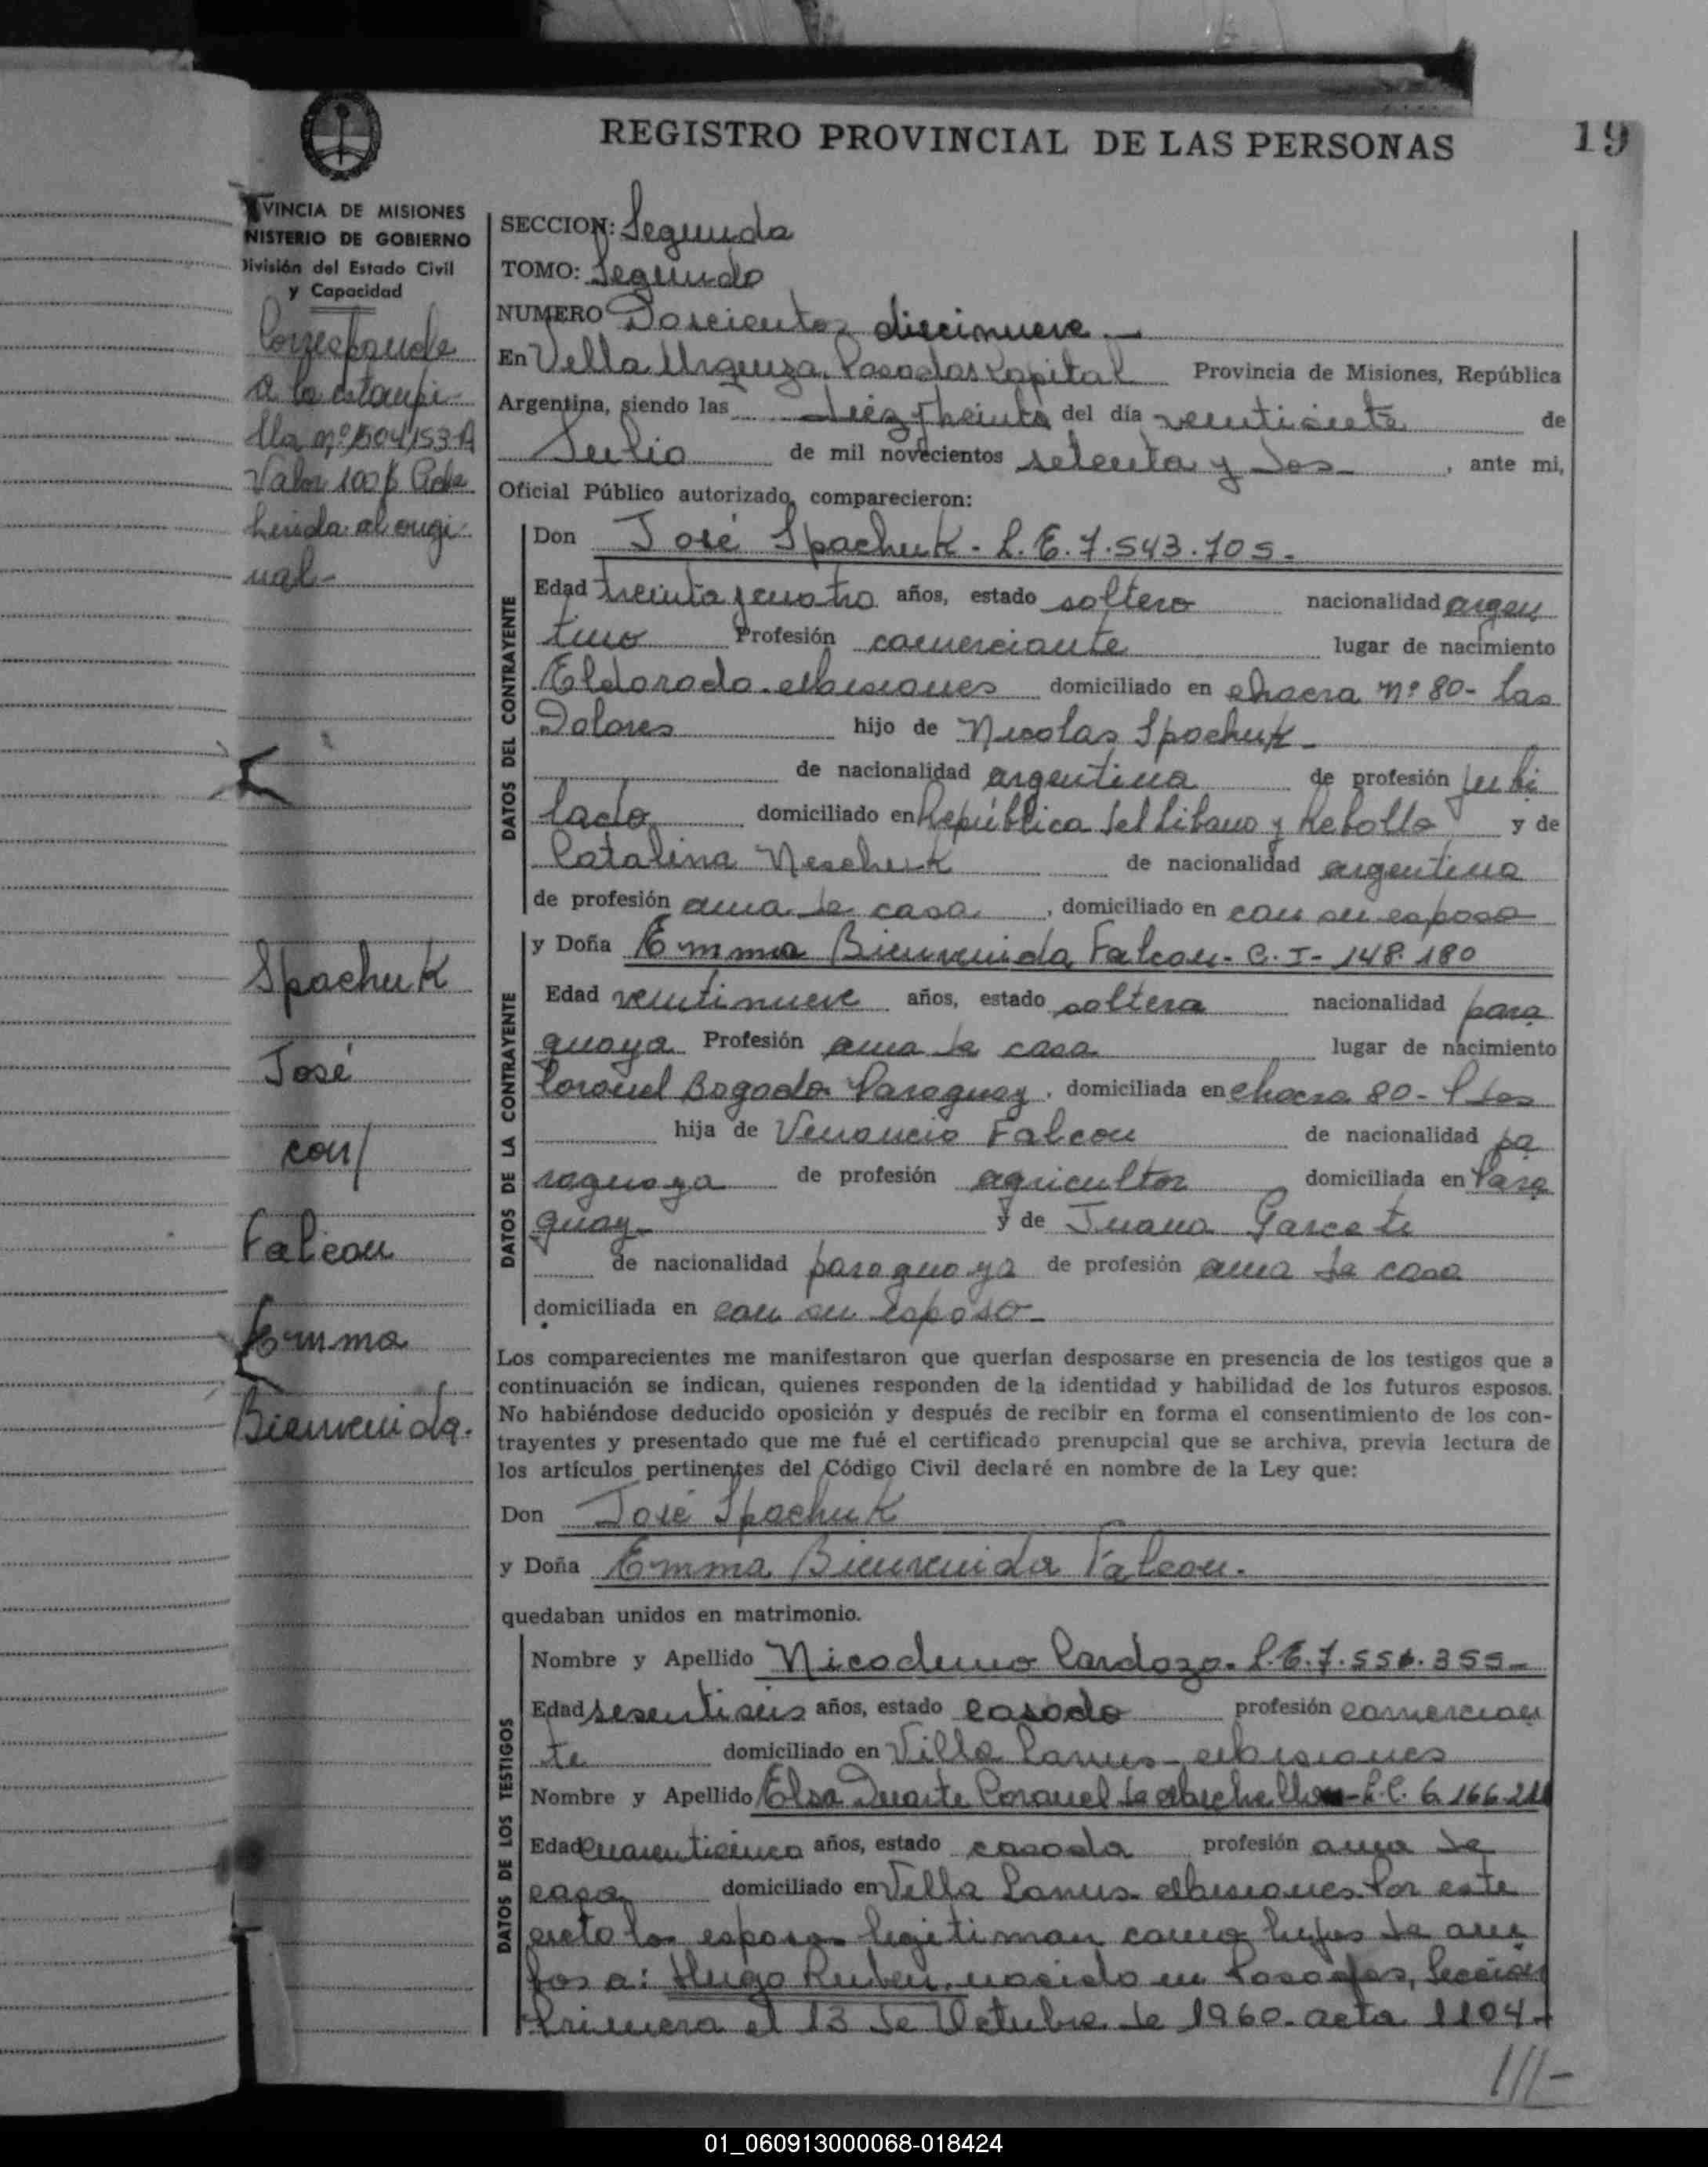 REGISTRO PROVINCIAL DE LAS PERSONAS
19
VINCIA DE MISIONES
NISTERIO DE GOBIERNO
División del Estado Civil
y Capacidad
Corresponde
a la estampi
lla nº 504153-A
Valor 100 $ Adhe
herida al origi
nal-
Spachuk
José
con/
Falcon
Emma
Bienvenida.
SECCION: Segunda
TOMO: Segundo
NUMERO Doscientos diecinueve.-
En Villa Urquiza, Posadas Capital Provincia de Misiones, República
Argentina, siendo las diez y treinta del día veintisiete de
Julio de mil novecientos setenta y dos- , ante mi,
Oficial Público autorizado, comparecieron:
DATOS DEL CONTRAYENTE
Don José Spachuk - L.E. 7.543.705.-
Edad treinta y cuatro años, estado soltero nacionalidad argen
tino Profesión comerciante lugar de nacimiento
Eldorado-Misiones domiciliado en chacra nº 80- Las
Dolores hijo de Nicolas Spachuk-
de nacionalidad argentina de profesión jubi
lado domiciliado en República del Libano y Rebollo y de
Catalina Neschuk de nacionalidad argentina
de profesión ama de casa , domiciliado en con su esposo
DATOS DE LA CONTRAYENTE
y Doña Emma Bienvenida Falcon- C.I- 148.180
Edad veintinueve años, estado soltera nacionalidad para
guaya Profesión ama de casa lugar de nacimiento
Coronel Bogado Paraguay, domiciliada en chacra 80-
hija de Venancio Falcon de nacionalidad pa
raguaya de profesión agricultor domiciliada en Para
guay- y de Juana Garcete
de nacionalidad paraguaya de profesión ama de casa
domiciliada en con su esposo-
Los comparecientes me manifestaron que querían desposarse en presencia de los testigos que a
continuación se indican, quienes responden de la identidad y habilidad de los futuros esposos.
No habiéndose deducido oposición y después de recibir en forma el consentimiento de los con-
trayentes y presentado que me fué el certificado prenupcial que se archiva, previa lectura de
los artículos pertinentes del Código Civil declaré en nombre de la Ley que:
Don José Spachuk
y Doña Emma Bienvenida Falcon.
quedaban unidos en matrimonio.
DATOS DE LOS TESTIGOS
Nombre y Apellido Nicodemo Cardozo- L.E. 7.556.355-
Edad sesentiseis años, estado casado profesión comercian
te domiciliado en Villa Lanus-Misiones
Nombre y Apellido Elsa Duarte Coronel de L.C. 6.166.
Edad cuarenticinco años, estado casada profesión ama de
casa domiciliado en Villa Lanus-Misiones. Por este
acto los esposos legitiman como hijos de am
bos a: Hugo Ruben, nacido en Posadas, Sección
Primera el 13 de Octubre de 1960- acta 1104-
///-
01_060913000068-018424